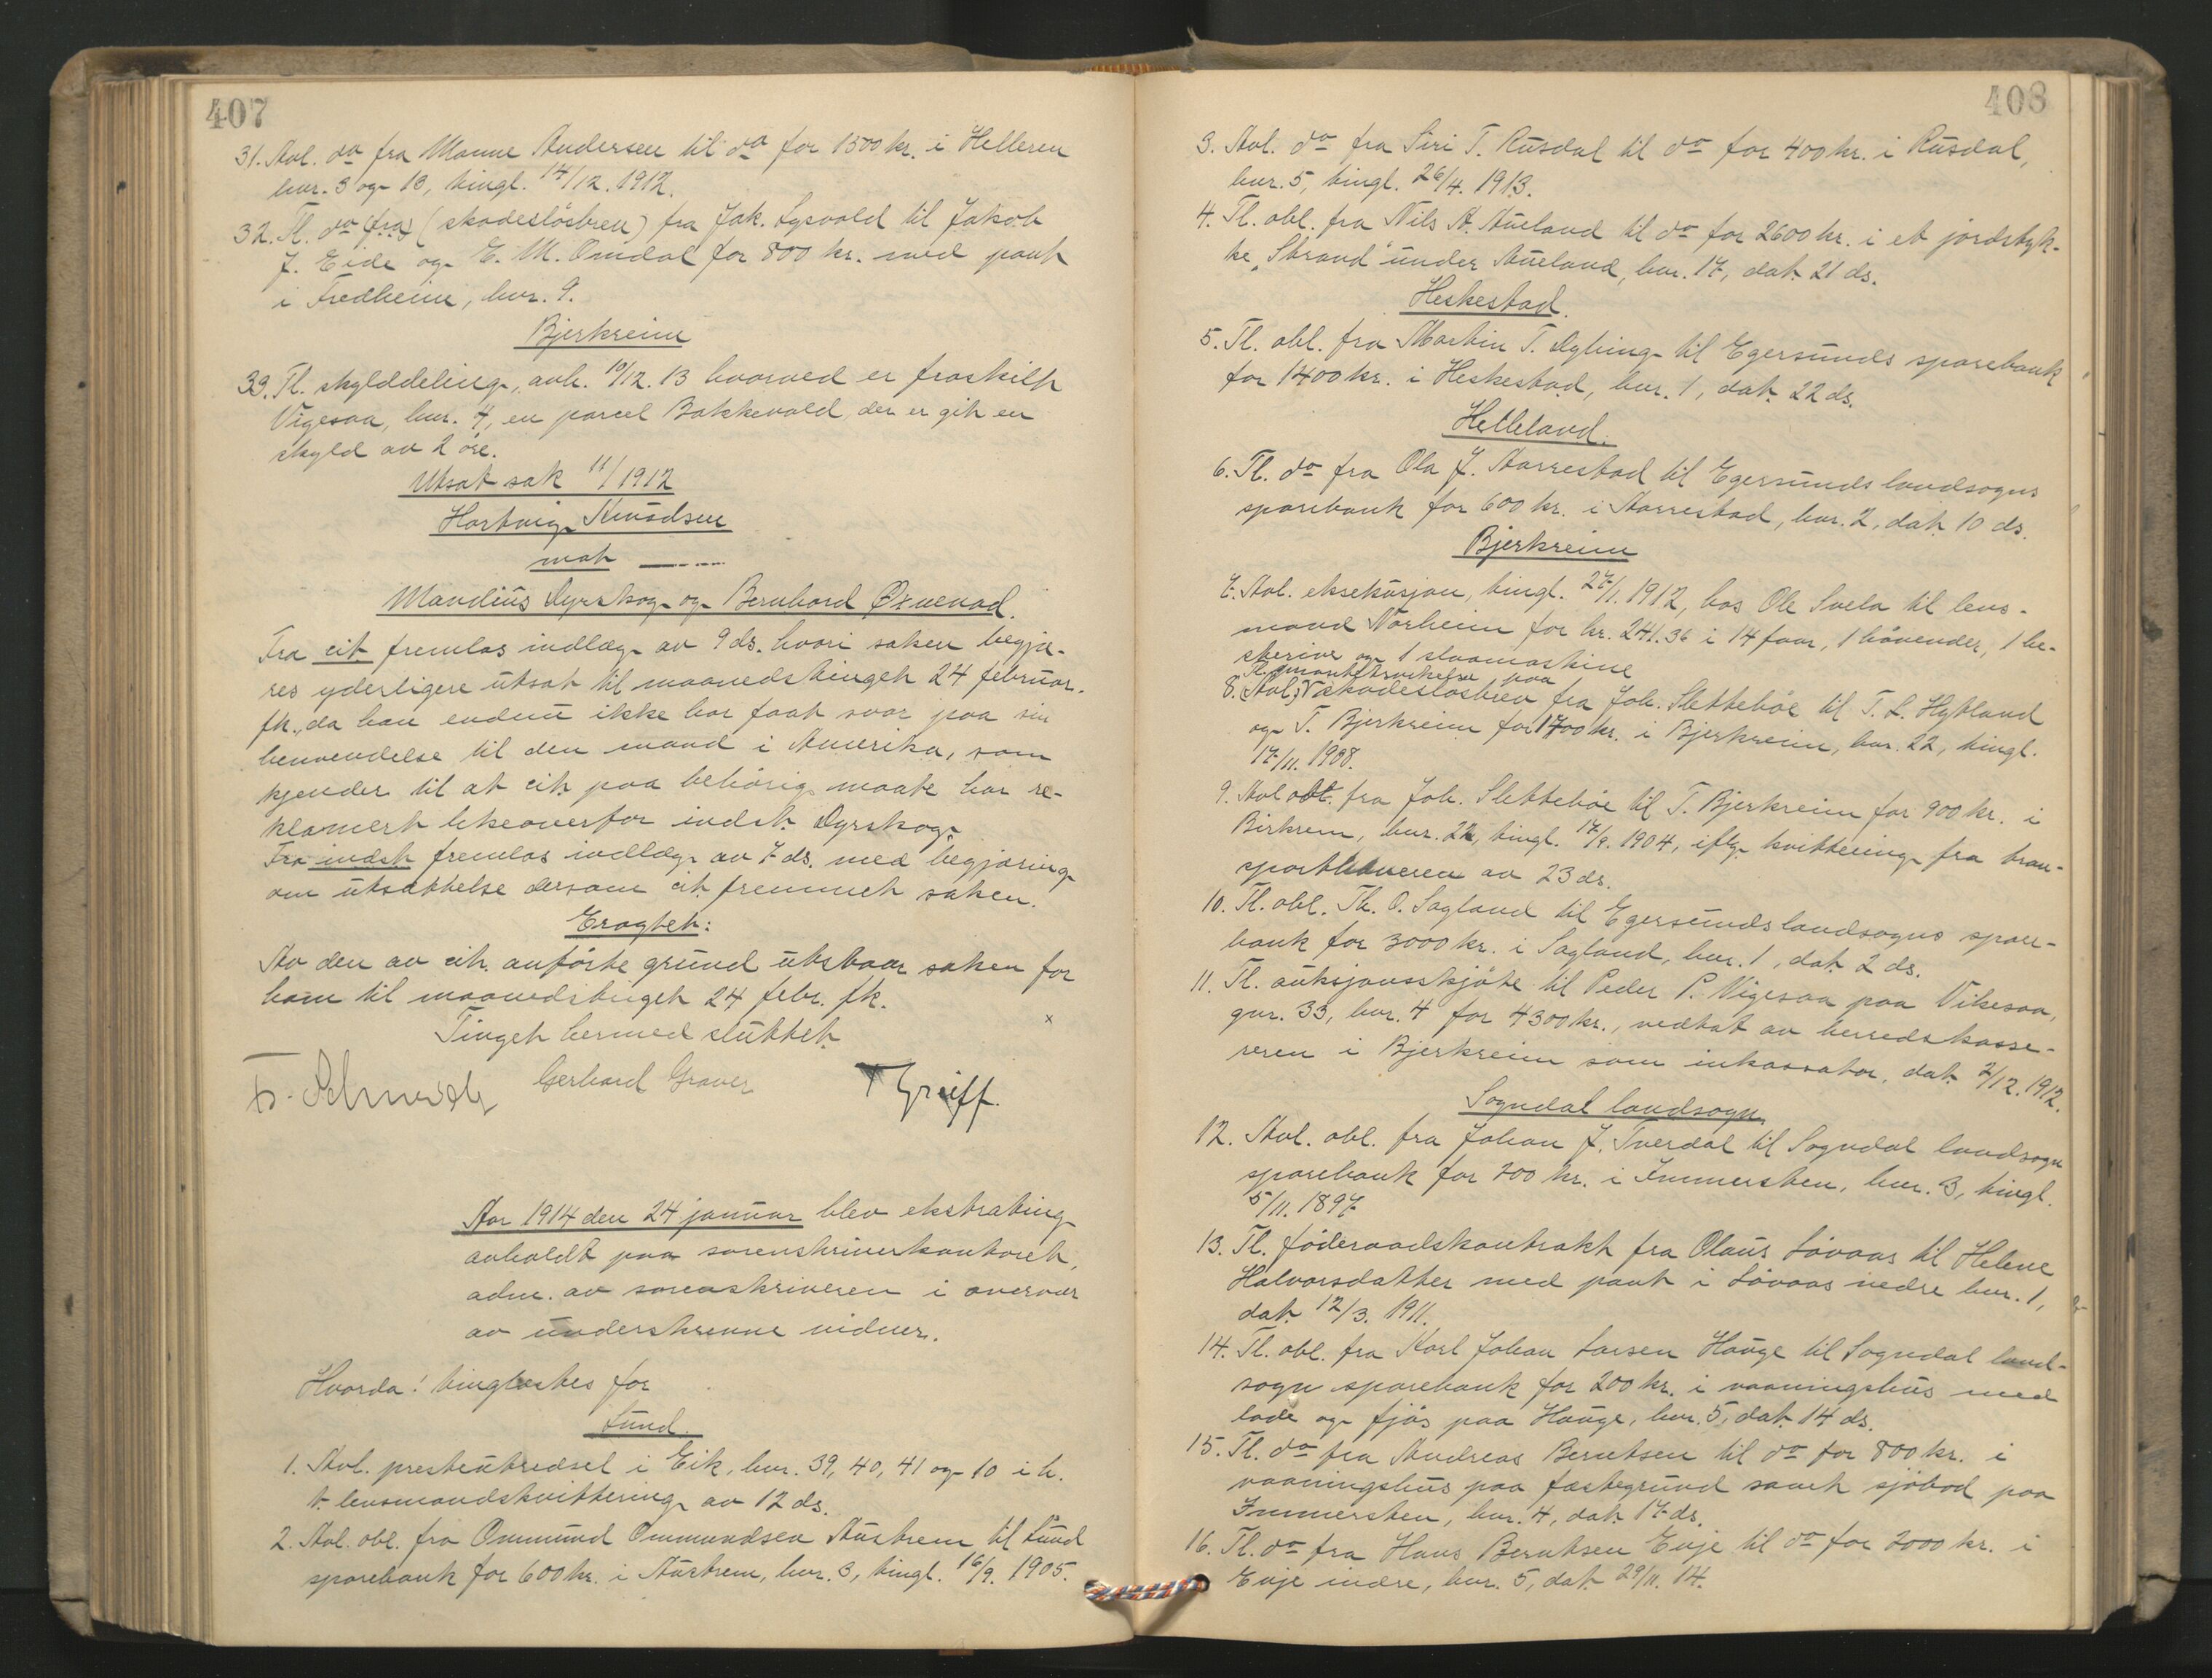 407
31. Avl. do fra Monne Andersen til do for 1500 kr. i Helleren
bnr. 3 og 13, tingl. 14/12. 1912.
32. Tl. do (fra) (skadesløsbrev) fra Jak. Lysvold til Jakob
J. Eide og E. M. Omdal for 800 kr. med pant
i Fredheim, bnr. 9.
Bjerkreim
33. Tl. skylddeling, avh. 10/12. 13 hvorved er fraskilt
Vigesaa, bnr. 4, en parcel Bakkevold, der er git en
skyld av 2 øre.
Utsat sak 11/1912
Hartvig Knudsen
mot
Mandius Dyrskog og Bernhard Øxnevad.
Fra cit. fremlas indlæg av 9 ds. hvori saken begjæ-
res yderligere utsat til maanedstinget 24 februar.
fk., da han endnu ikke har faat svar paa sin
henvendelse til den mand i Amerika, som
kjender til at cit. paa behørig maate har re-
klamert likeoverfor indst. Dyrskog.
Fra indst. fremlas indlæg av 7 ds. med begjæring
om utsættelse dersom cit. fremmet saken.
Eragtet:
Av den av cit. anførte grund utstaar saken for
ham til maanedstinget 24 febr. fk.
Tinget hermed sluttet.
Gerhard Graver T Greiff.
Aar 1914 den 24 januar blev ekstrating
avholdt paa sorenskriverkontoret,
adm. av sorenskriveren i overvær
av underskrevne vidner.
Hvorda! tinglæstes for
Lund.
1. Avl. presteutredsel i Eik, bnr. 39, 40, 41 og 10 i h.
t. lensmandskvittering av 12 ds.
2. Avl. obl. fra Ommund Ommundsen Austrem til Lund
sparebank for 600 kr. i Austrem, bnr. 3, tingl. 16/9. 1905.
408
3. Avl. do fra Siri T. Rusdal til do for 400 kr. i Rusdal,
bnr. 5, tingl. 26/4. 1913.
4. Tl. obl. fra Nils A. Aueland til do for 2600 kr. i et jordstyk-
ke „Strand" under Aueland, bnr. 17, dat. 21 ds.
Heskestad.
5. Tl. obl. fra Martin T. Dybing til Egersunds sparebank
for 1400 kr. i Heskestad, bnr. 1, dat. 22 ds.
Helleland.
6. Tl. do fra Ola J. Aarrestad til Egersunds landsogns
sparebank for 600 kr. i Aarrestad, bnr. 2, dat. 10 ds.
Bjerkreim
7. Avl. eksekusjon, tingl. 27/1. 1912, hos Ole Svela til lens-
mand Norheim for kr. 241.36 i 14 faar, 1 høvender, 1 be-
og 1 slaamaskine
Tl. paa
8. (Avl.) skadesløsbrev fra Joh. Slettebøe til T. L. Hytland
og T. Bjerkreim for 1700 kr. i Bjerkreim, bnr. 22, tingl.
17/11. 1908.
9. Avl obl. fra Joh. Slettebøe til T. Bjerkreim for 900 kr. i
Birkrem, bnr. 22, tingl. 17/9. 1904, iflg. kvittering fra tran-
sporthaveren av 23 ds.
10. Tl. obl. Th. O. Sagland til Egersunds landsogns spare-
bank for 3000 kr. i Sagland, bnr. 1, dat. 2 ds.
11. Tl. auksjonsskjøte til Peder P. Vigesaa paa Vikesaa,
gnr. 33, bnr. 4 for 4300 kr., vedtat av herredskasse-
reren i Bjerkreim som inkassator, dat. 2/12. 1912.
Sogndal landsogn.
12. Avl. obl. fra Johan J. Tverdal til Sogndal landsogn
sparebank for 200 kr. i Immersten, bnr. 3, tingl.
5/11. 1897
13. Tl. føderaadskontrakt fra Olaus Løvaas til Helene
Halvorsdatter med pant i Løvaas nedre bnr. 1,
dat. 12/3. 1911.
14. Tl. obl. fra Karl Johan Larsen Hauge til Sogndal land-
sogn sparebank for 200 kr. i vaaningshus med
lade og fjøs paa Hauge, bnr. 5, dat. 14 ds.
15. Tl. do fra Andreas Berntsen til do for 800 kr. i
vaaningshus paa fæstegrund samt sjøbod paa
Immersten, bnr. 4, dat. 17 ds.
16. Tl. do fra Hans Berntsen Evje til do for 2000 kr. i
Evje indre, bnr. 5, dat. 29/11. 14.